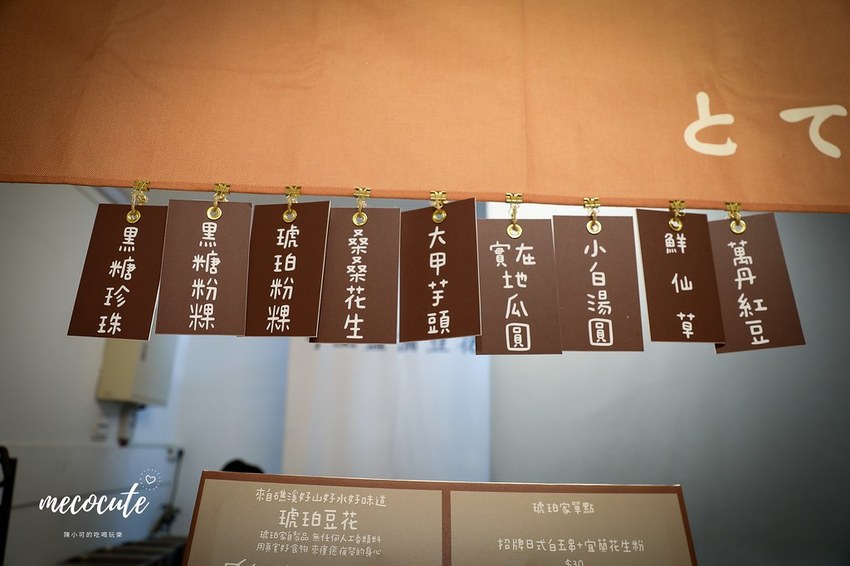 とて
黑糖珍珠
黑糖粉粿
琥珀粉粿
桑桑花生
大甲芋頭
在地瓜圓
實
小白湯圓
鮮仙草
萬丹紅豆
來自礁溪好山好水好味道
琥珀豆花
琥珀家自製品 無任何人工香精料
用真實好食物 來療癒疲勞的身心
琥珀家單點
招牌日式白玉串+宜蘭花生粉
$30
mecocute
陳小可的吃喝玩樂